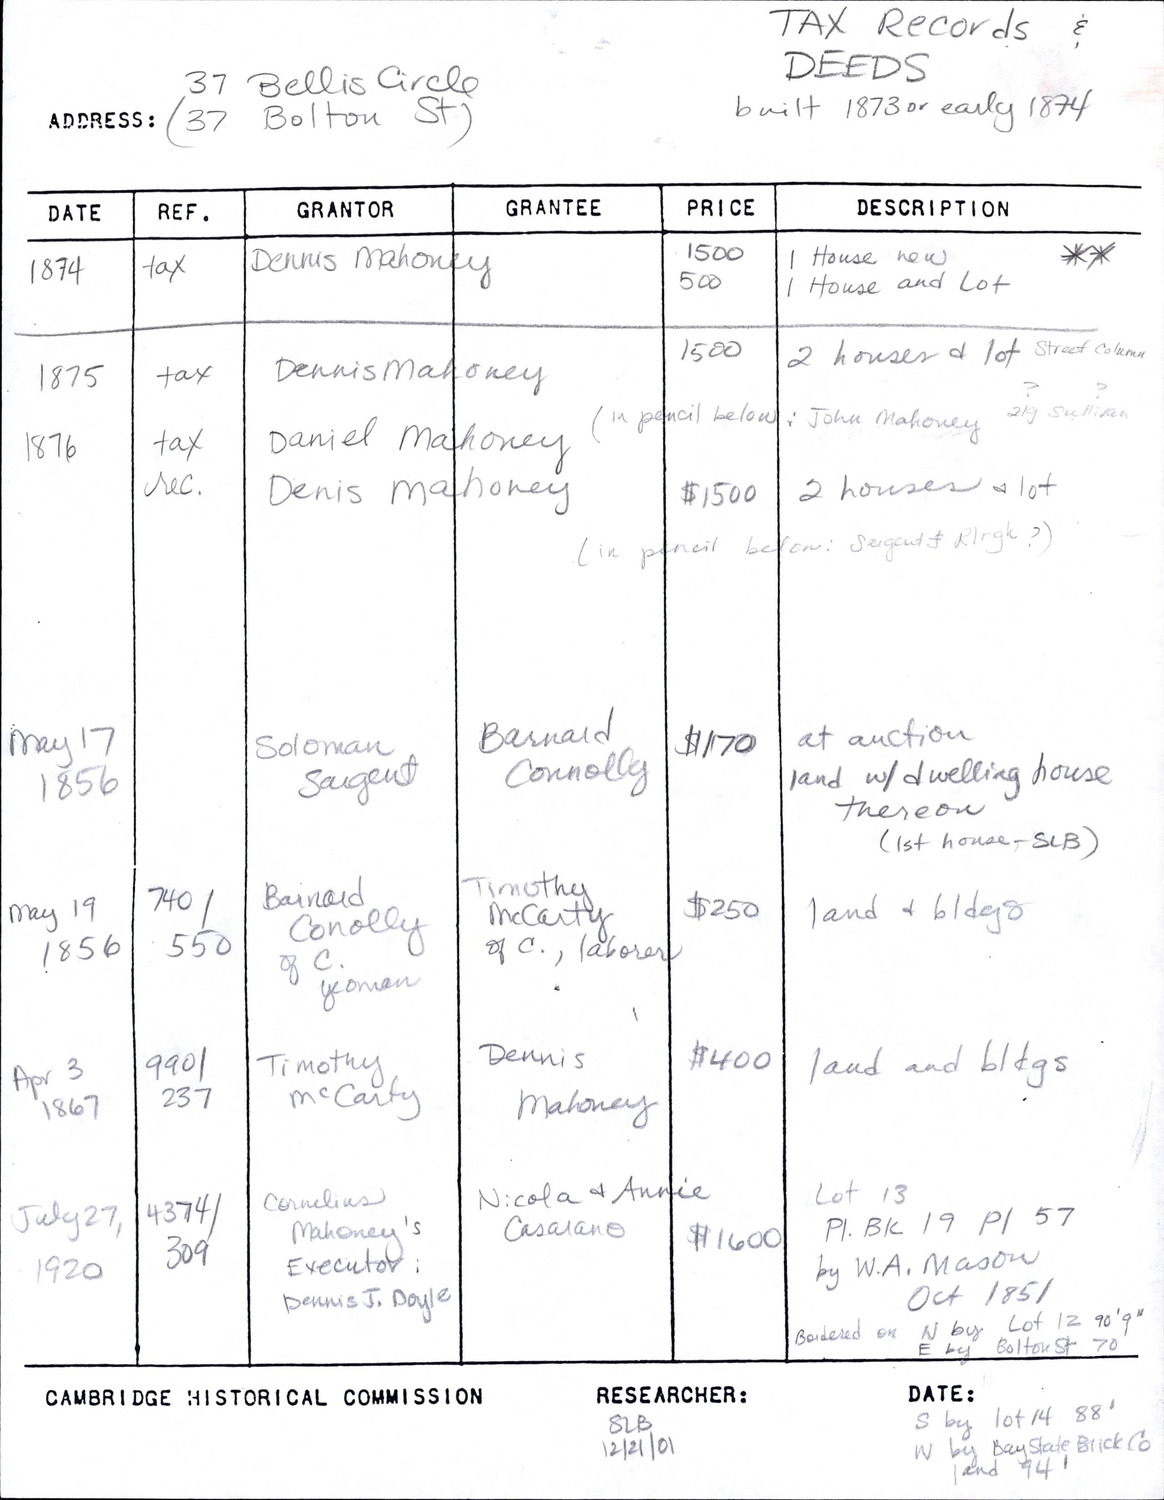 TAX Records &
DEEDS
built 1873 or early 1874
37 Bellis Circle
ADDRESS: (37 Bolton St)
DATE REF. GRANTOR GRANTEE PRICE DESCRIPTION
1874 tax Dennis Mahoney 1500 1 House new **
500 1 House and Lot
1875 tax Dennis Mahoney 1500 2 houses & lot Street Column
? ?
(in pencil below: John Mahoney Sullivan
1876 tax Daniel Mahoney
rec. Denis Mahoney $1500 2 houses & lot
(in pencil below: Sargent ?)
May 17 Soloman Barnard $1170 at auction
1856 Sargent Connolly land w/dwelling house
thereon
(1st house - SLB)
May 19 740/ Barnard Timothy $250 land & bldgs
1856 550 Conolly McCarty
of C. of C., laborer
yeoman
Apr 3 990/ Timothy Dennis $400 land and bldgs
1867 237 McCarty Mahoney
July 27, 4374/ Cornelius Nicola & Annie $1600 Lot 13
1920 309 Mahoney's Casarano Pl. BK 19 Pl 57
Executor: by W.A. Mason
Dennis J. Doyle Oct 1851
Bordered on N by Lot 12 90'9"
E by Bolton St 70
CAMBRIDGE HISTORICAL COMMISSION RESEARCHER: DATE:
SLB S by lot 14 88'
12/21/01 W by Bay State Brick Co
land 94'